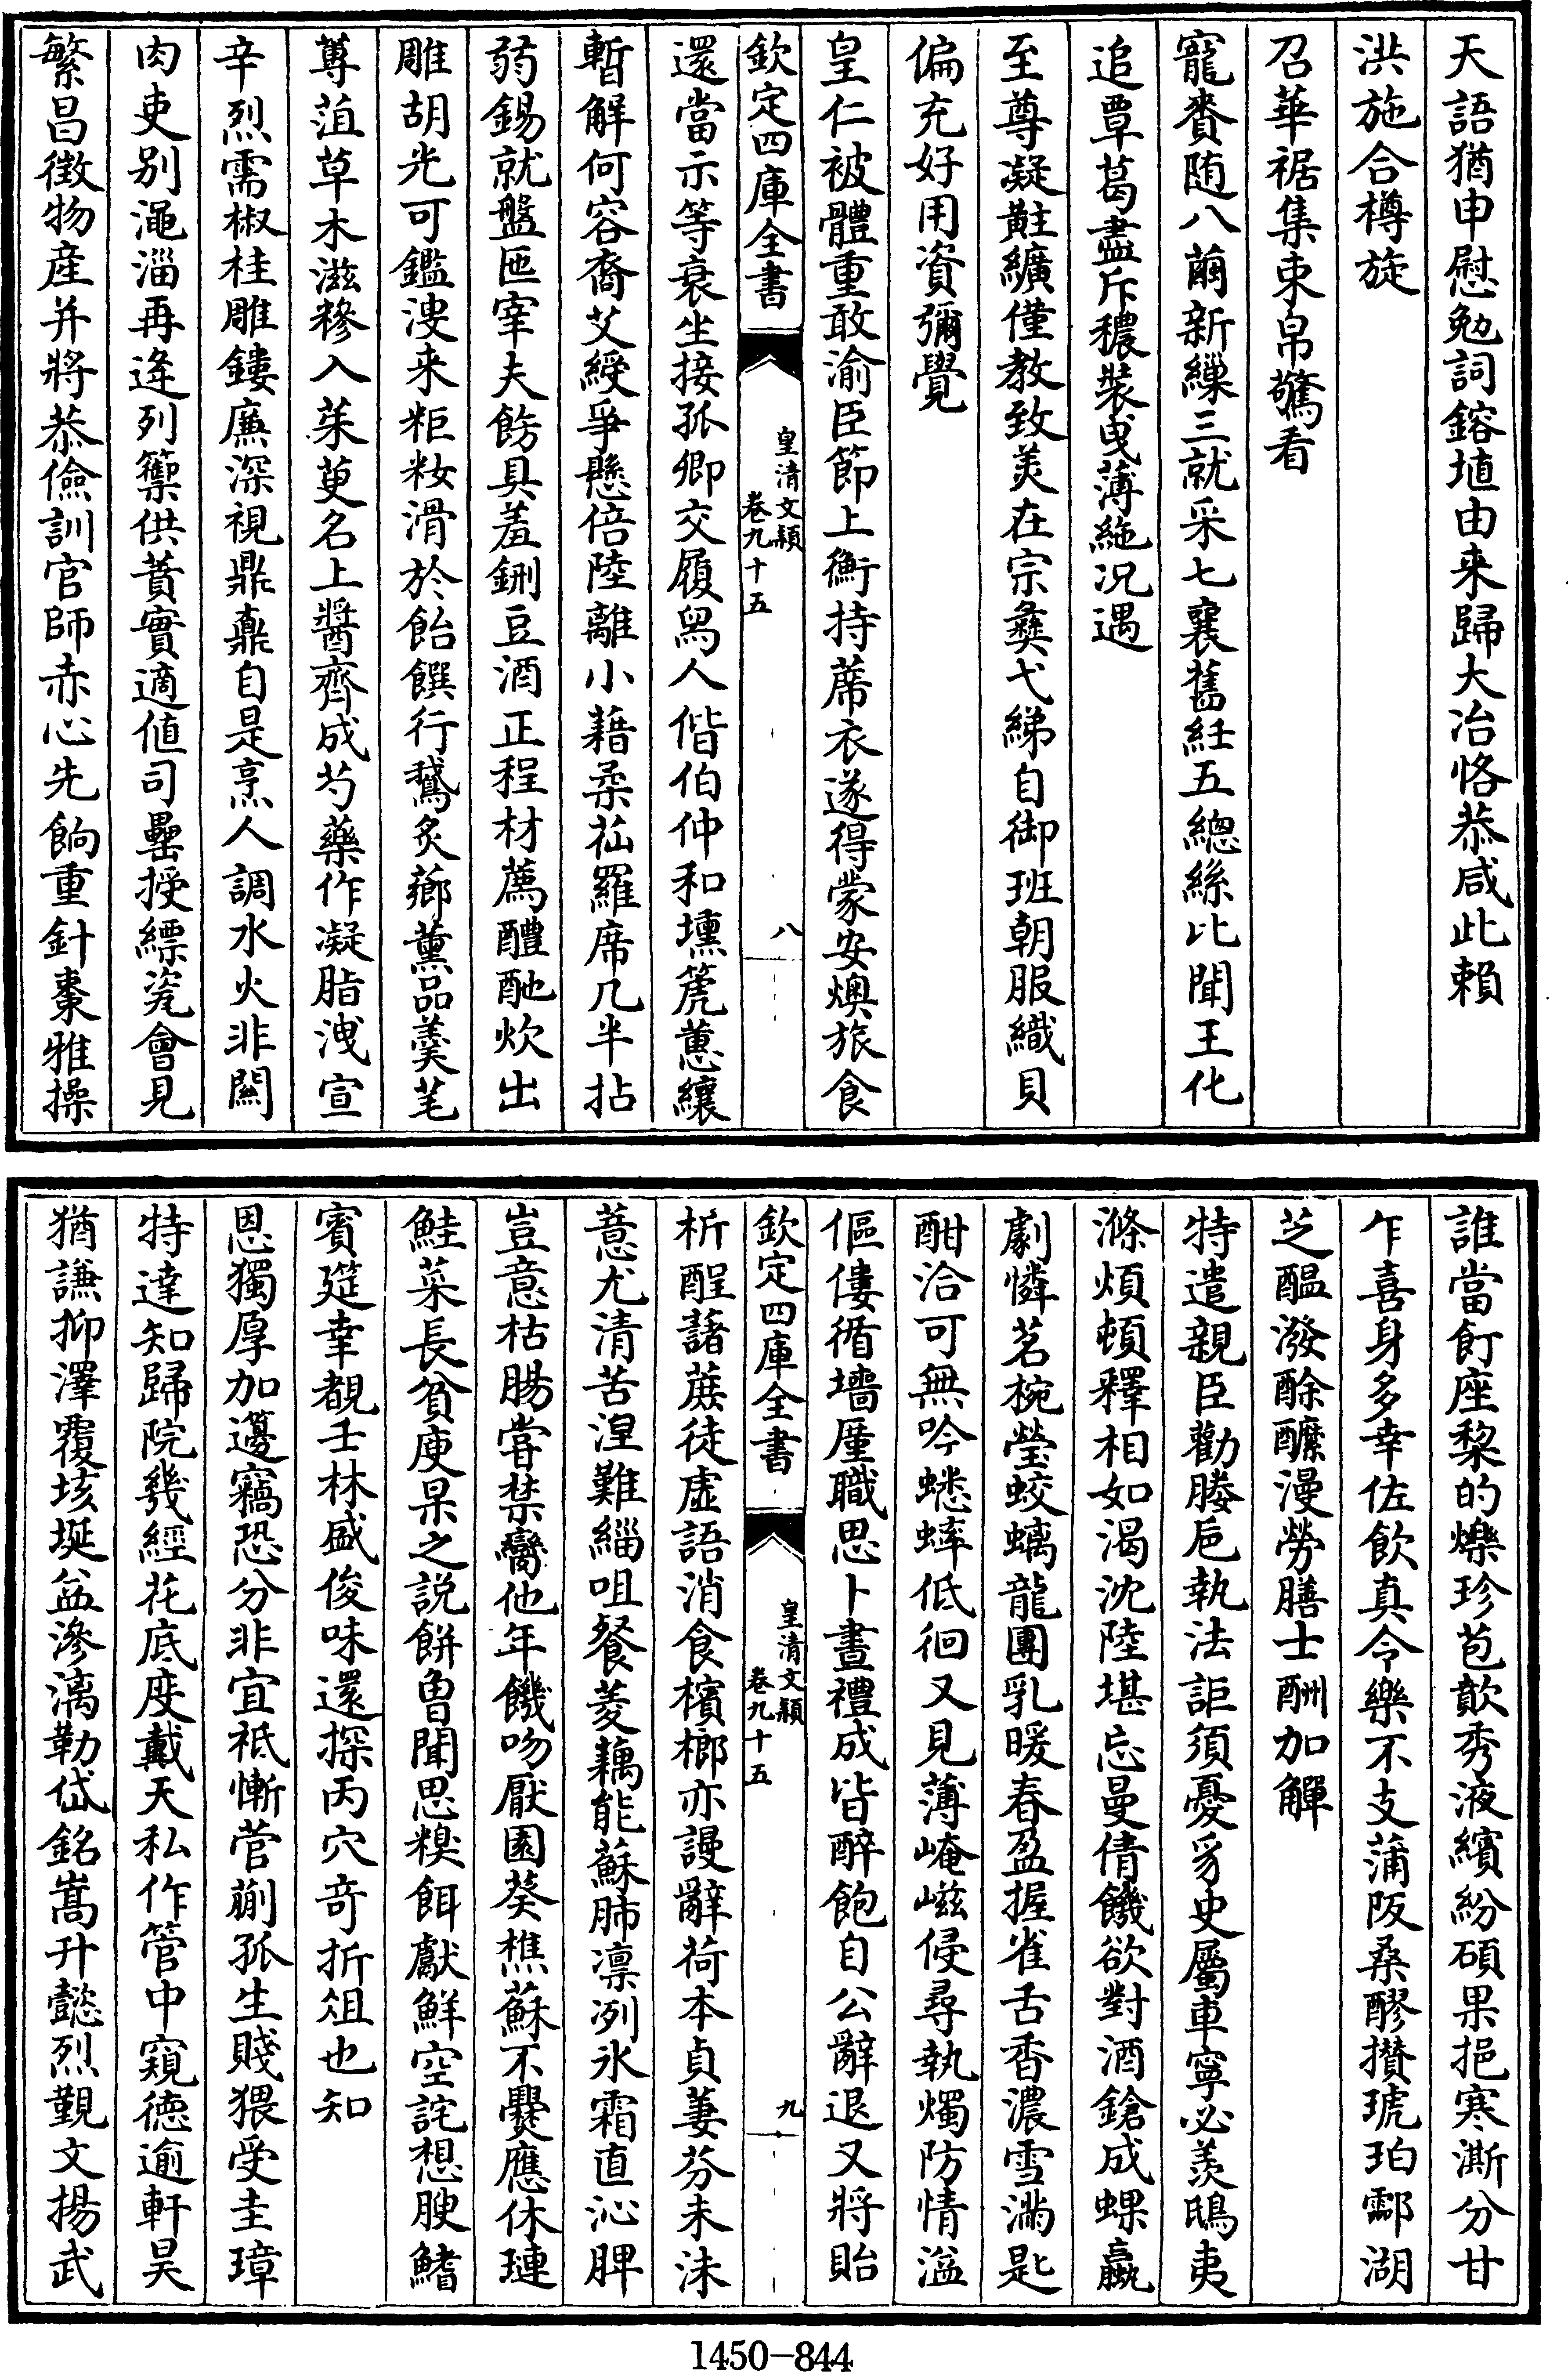 天語猶申慰勉詞鎔埴由来歸大冶恪恭咸此賴
洪施合樽旋
召華裾集束帛驚看
寵賚随八蘭新繅三就采七襄舊紝五緫絲比聞王化
追覃葛盡斥穠裝曳薄絁况遇
至尊凝黈纊僅教致美在宗彝弋綈自御班朝服織貝
偏充好用資彌覺
皇仁被體重敢渝臣節上衡持蓆衣遂得蒙安燠旅食
欽定四庫全書
皇清文穎
卷九十五
八
還當示等衰坐接孤卿交履舄人偕伯仲和壎箎蕙纕
暫解何容裔艾綬爭懸倍陸離小藉柔荪羅席几半拈
蒻錫就盤匜宰夫餝具羞鉶豆酒正程材薦醴酏炊出
雕胡光可鑑溲来粔籹滑於飴饌行鵞炙薌薰品羹芼
蓴菹草木滋糝入茱萸名上醬齊成芍藥作凝脂洩宣
辛烈需椒桂雕鏤廉深視鼎鼒自是烹人調水火非關
肉吏别澠淄再逄列籞供蕡實適值司罍授縹瓷會見
繁昌徴物産并將恭儉訓官師赤心先餉重針棗雅操
誰當飣座棃的爍珍苞歕秀液繽紛碩果挹寒澌分甘
乍喜身多幸佐飲真令樂不支蒲阪桑醪攅琥珀酃湖
芝醖潑酴醿漫勞膳士酬加觶
特遣親臣勸媵巵執法詎須憂豸史屬車寧必羨鴟夷
滌煩頓釋相如渴沈陸堪忘曼倩饑欲對酒鎗成蜾蠃
劇憐茗椀瑩蛟螭龍團乳暖春盈握雀舌香濃雪滿匙
酣洽可無吟蟋蟀低徊又見薄崦嵫侵尋執燭防情溢
傴僂循墻厪職思卜晝禮成皆醉飽自公辭退又將貽
欽定四庫全書
皇清文穎
卷九十五
九
析酲藷蔗徒虚語消食檳榔亦謾辭荷本貞萋芬未沬
薏尤清苦涅難緇咀餐菱藕能蘇肺凛冽氷霜直沁脾
豈意枯腸嘗禁臠他年饑吻厭園葵樵蘇不爨應休璉
鮭菜長貧庾杲之説餅曽聞思糗餌獻鮮空詫想腴鰭
賓筵幸覩壬林盛俊味還探丙穴竒折俎也知
恩獨厚加籩竊恐分非宜祗慚菅蒯孤生賤猥受圭璋
特達知歸院幾經花底度戴天私作管中窺徳逾軒昊
猶謙抑澤覆垓埏益滲漓勒岱銘嵩升懿烈覲文揚武
1450-844